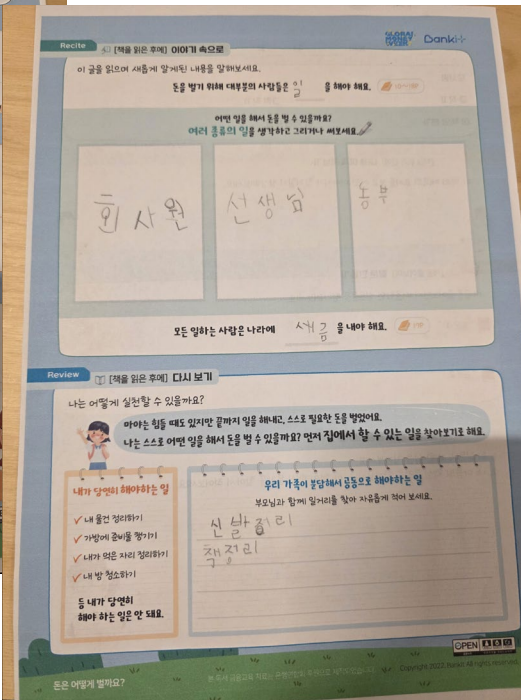 Recite [책을 읽은 후에] 이야기 속으로
GLOBAL MONEY WEEK Banki+
이 글을 읽으며 새롭게 알게된 내용을 말해보세요.
돈을 벌기 위해 대부분의 사람들은 일 을 해야 해요.
어떤 일을 해서 돈을 벌 수 있을까요?
여러 종류의 일을 생각하고 그리거나 써보세요.
회사원 선생님 농부
모든 일하는 사람은 나라에 세금 을 내야 해요.
Review [책을 읽은 후에] 다시 보기
나는 어떻게 실천할 수 있을까요?
마야는 힘들 때도 있지만 끝까지 일을 해내고, 스스로 필요한 돈을 벌었어요.
나는 스스로 어떤 일을 해서 돈을 벌 수 있을까요? 먼저 집에서 할 수 있는 일을 찾아보기로 해요.
내가 당연히 해야하는 일
내 물건 정리하기
가방에 준비물 챙기기
내가 먹은 자리 정리하기
내 방 청소하기
등 내가 당연히
해야 하는 일은 안 돼요.
우리 가족이 분담해서 공동으로 해야하는 일
부모님과 함께 일거리를 찾아 자유롭게 적어 보세요.
신발정리
책정리
OPEN
Copyright 2022. All rights reserved.
돈은 어떻게 벌까요?